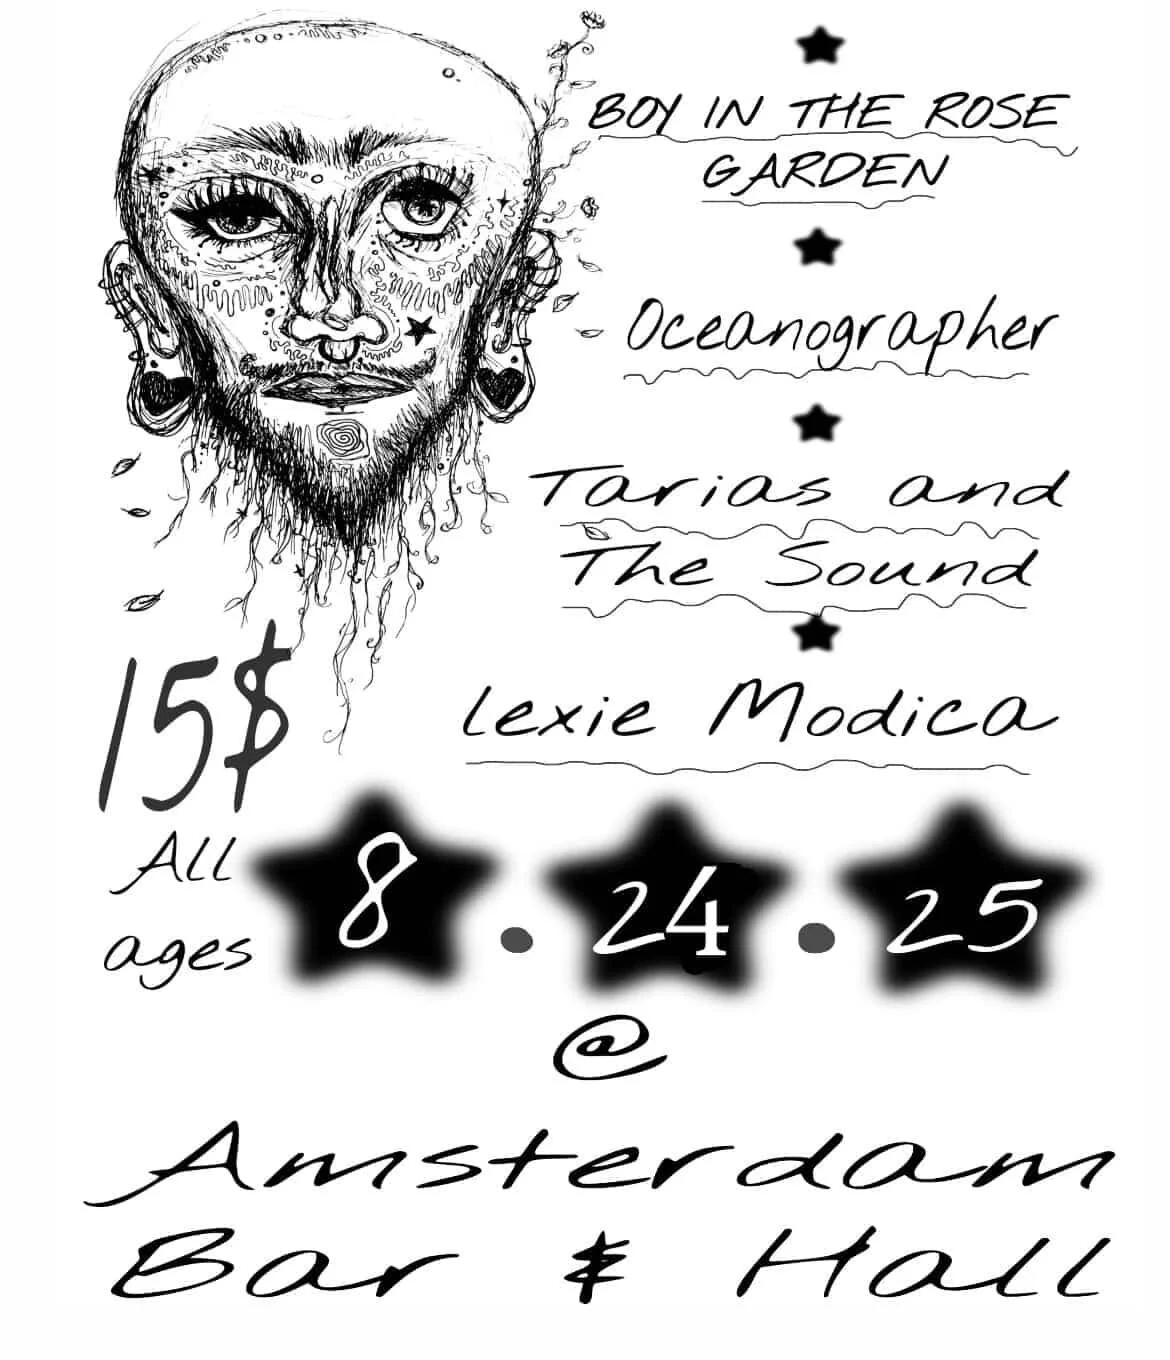 BOY IN THE ROSE
GARDEN
Oceanographer
Tarias and
The Sound
Lexie Modica
15$
All
ages
8.24.25
@
Amsterdam
Bar & Hall